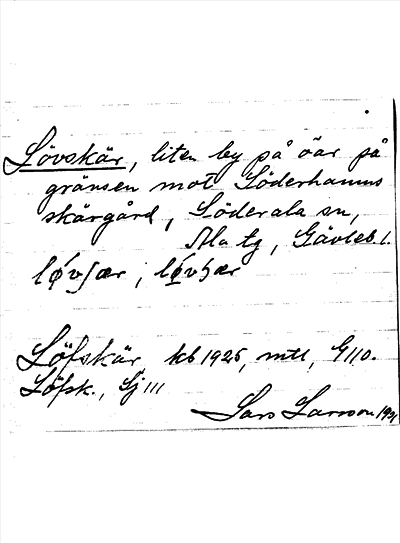 Lövskär, liten by på öar på
gränsen mot Söderhamns
skärgård, Söderala sn,
Ala tg, Gävleb. l.
lǿvʃær ; lǿ̨vʃær
Löfskär kb 1925, mtl, G110.
Löfsk., Sj 111
Lars Larsson